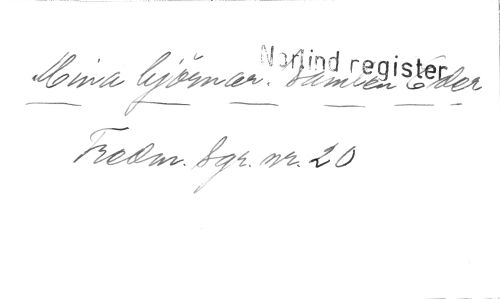 Norlind register
Mina hjärnor. Samlen Eder
Fredm. Sgr. nr. 20